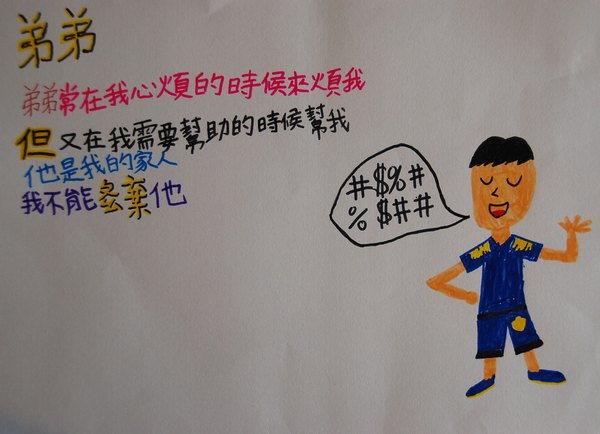 弟弟
弟弟常在我心煩的時候來煩我
但又在我需要幫助的時候幫我
他是我的家人
我不能丟棄他
#$%#
%$##